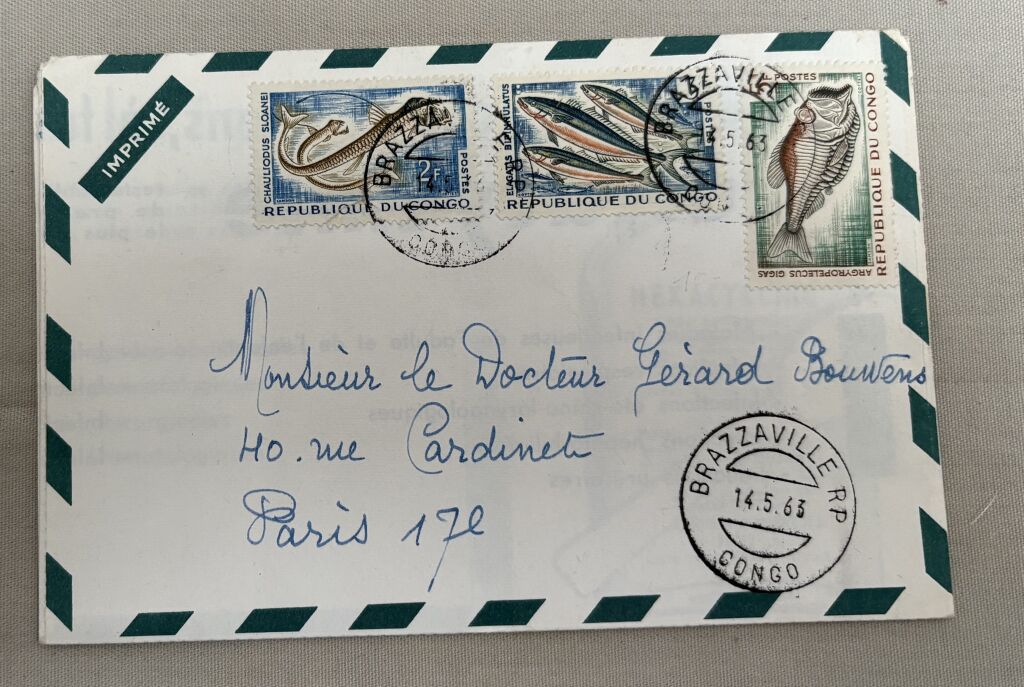 IMPRIMÉ
CHAULIODUS SLOANEI
2F
POSTES
REPUBLIQUE DU CONGO
ELAGATIS BIPINNULATUS
POSTES
REPUBLIQUE DU CONGO
POSTES
REPUBLIQUE DU CONGO
ARGYROPELECUS GIGAS
BRAZZAVILLE
14.5.63
CONGO
Monsieur le Docteur Gérard Bouwens
40. rue Cardinet
Paris 17e
BRAZZAVILLE RP
14.5.63
CONGO